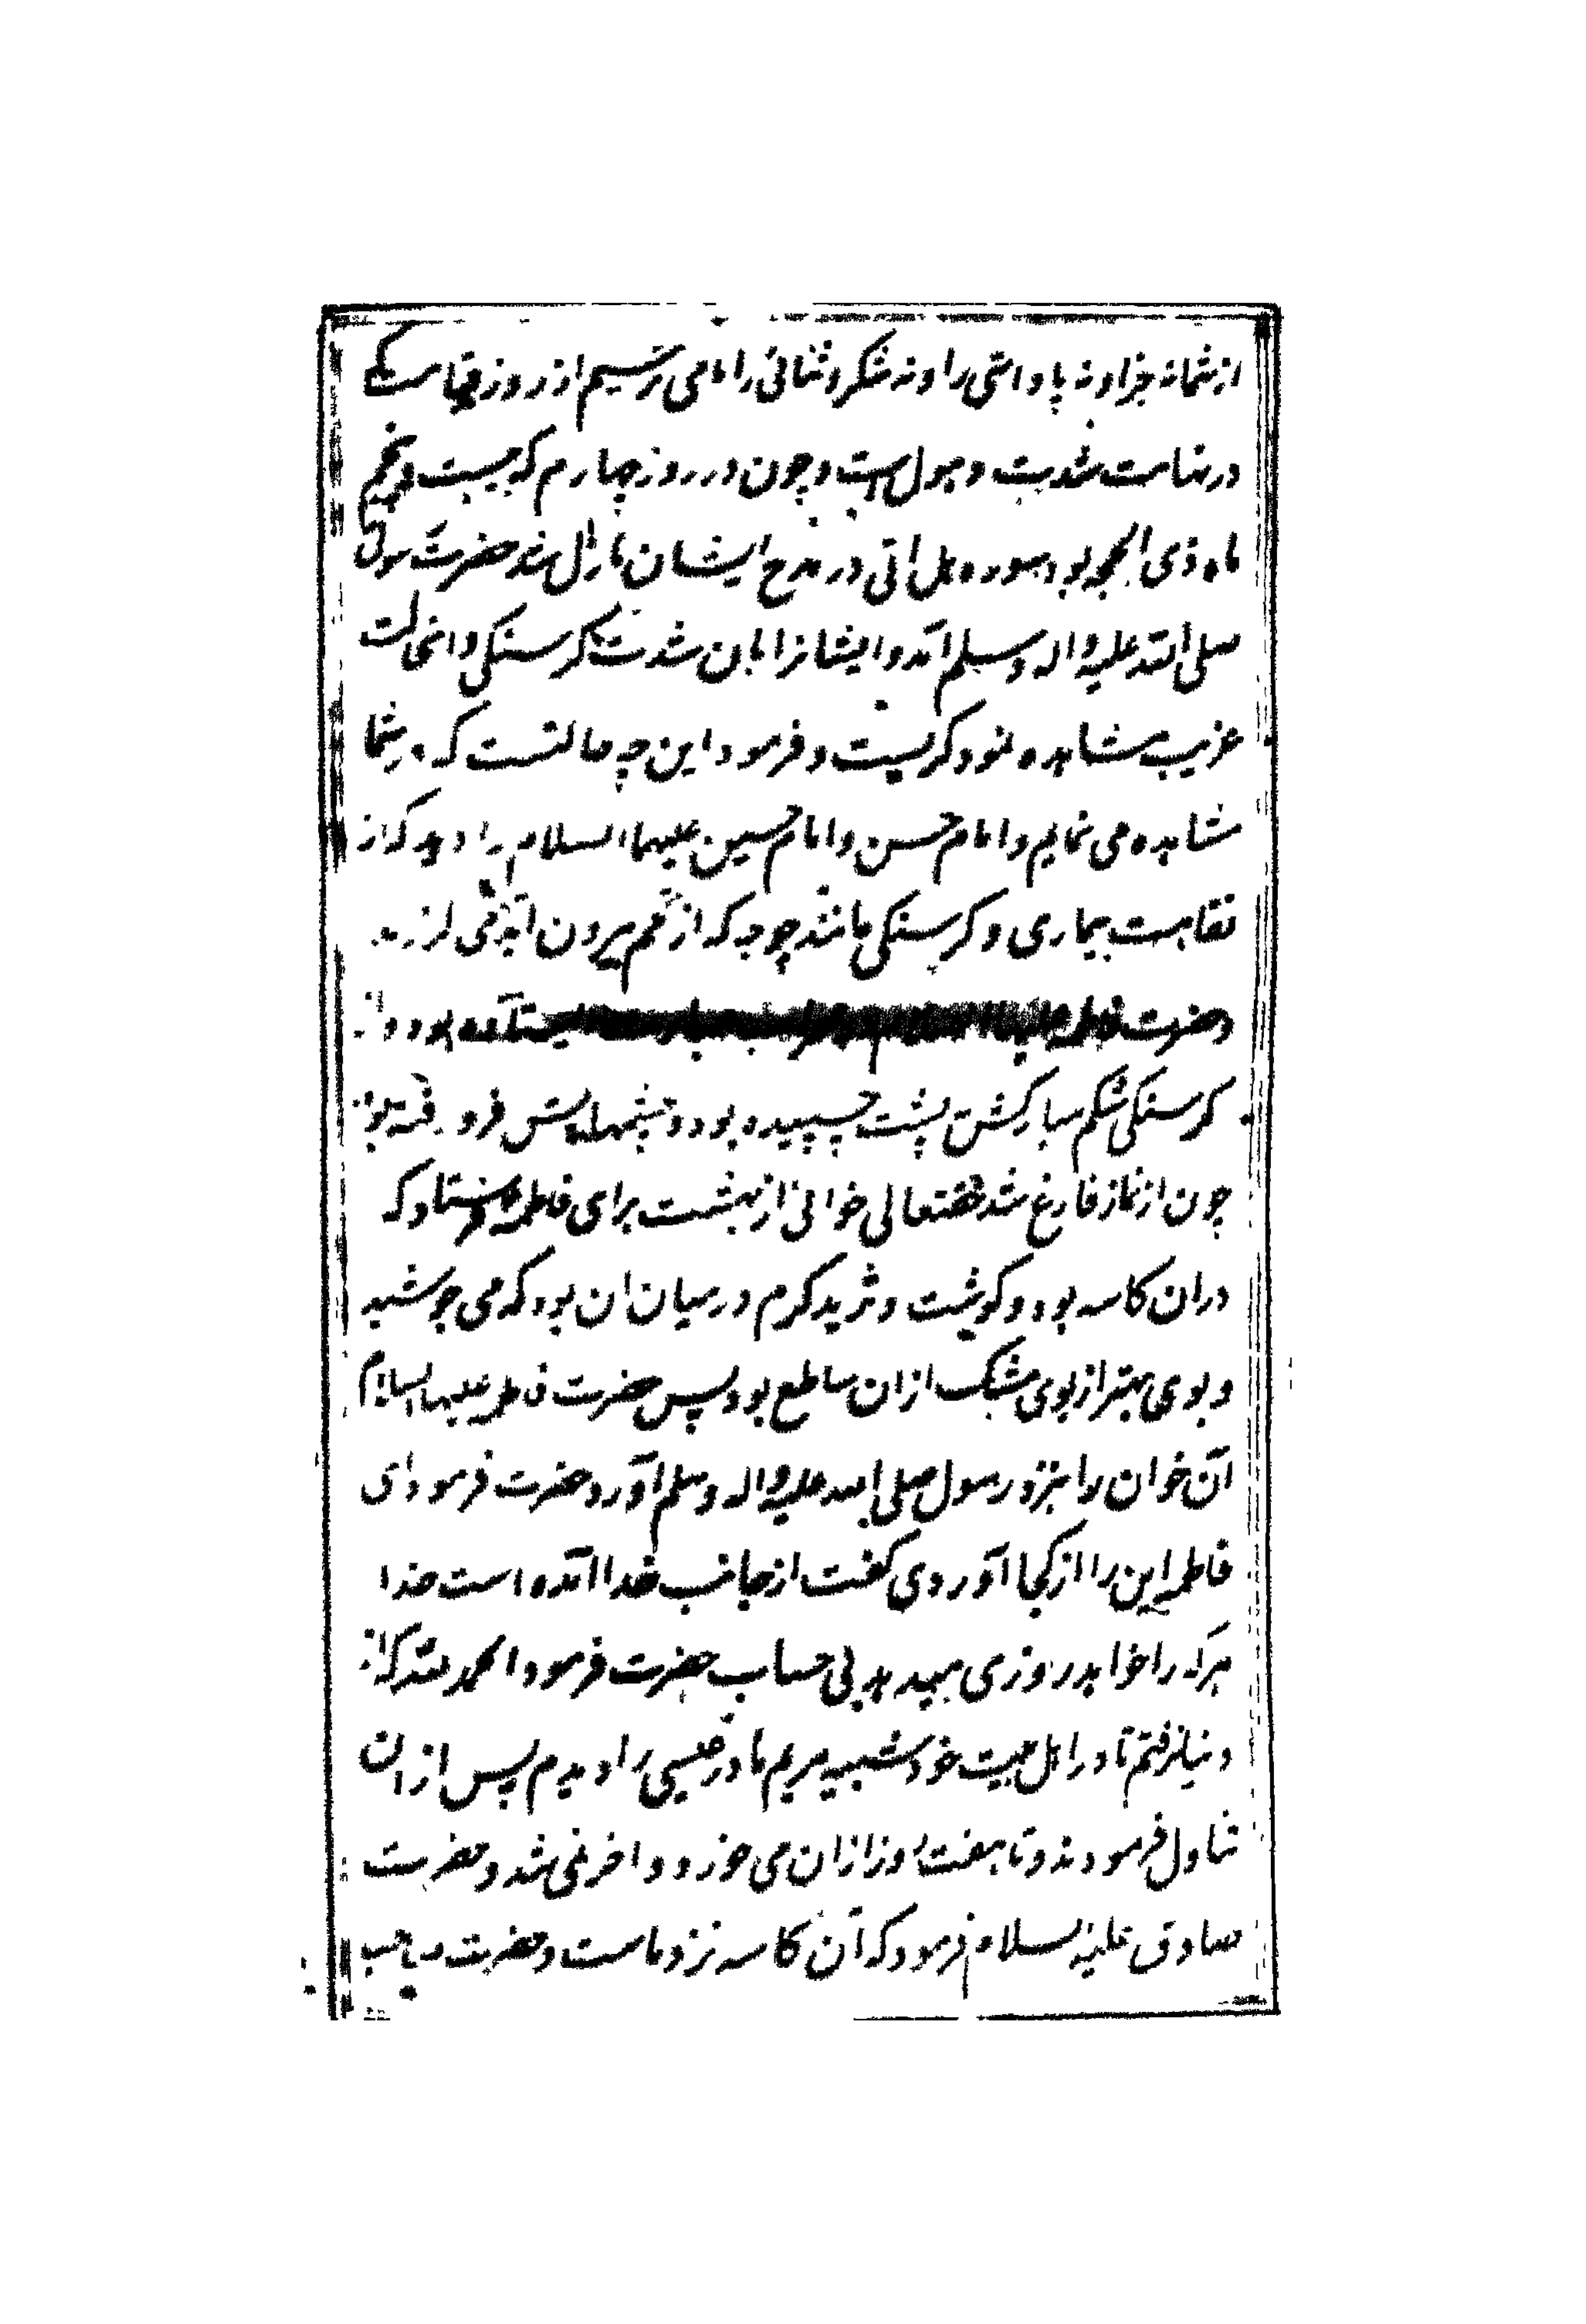 از شما نه جزا و نه پاداشی را و نه شکر و ثنائی را ما می ترسیم از روز قیامت که
در نهایت شدت و هول است و چون در روز چهارم که بیست و پنجم
ماه ذی الحجه بود سوره هل اتی در مدح ایشان نازل شد حضرت رسول
صلی الله علیه واله وسلم آمد و ایشانرا بان شدت کرسنکی و انحالت
غریب مشاهده نمود کریست و فرمود این چه حالتست که در شما
مشاهده می نمایم و امام حسن و امام حسین علیهما السلام را دید که از
نقاهت بیماری و کرسنکی مانند جوجه که از تخم بیرون آید می لرزید
و حضرت فاطمه علیها السلام در محراب عبادت ایستاده بود و از
کرسنکی شکم مبارکش به پشت چسپیده بود و چشمهایش فرو رفته بود
چون از نماز فارغ شد حقتعالی خوانی از بهشت برای فاطمه فرستاد که
دران کاسه بود و کوشت و ثرید کرم در میان ان بود که می جوشید
و بوی بهتر از بوی مشک ازان ساطع بود پس حضرت فاطمه علیها السلام
آن خوان را بنزد رسول صلی الله علیه واله وسلم آورد حضرت فرمود ای
فاطمه این را از کجا آوردی کفت از جانب خدا آمده است خدا
هرکه را خواهد روزی میدهد بی حساب حضرت فرمود الحمد لله که از
دنیا نرفتم تا در اهل بیت خود شبیه مریم مادر عیسی را دیدم پس از ان
تناول فرمودند و تا هفت روز ازان می خوردند و اخر نمی شد و حضرت
صادق علیه السلام فرمود که آن کاسه نزد ماست و حضرت صاحب